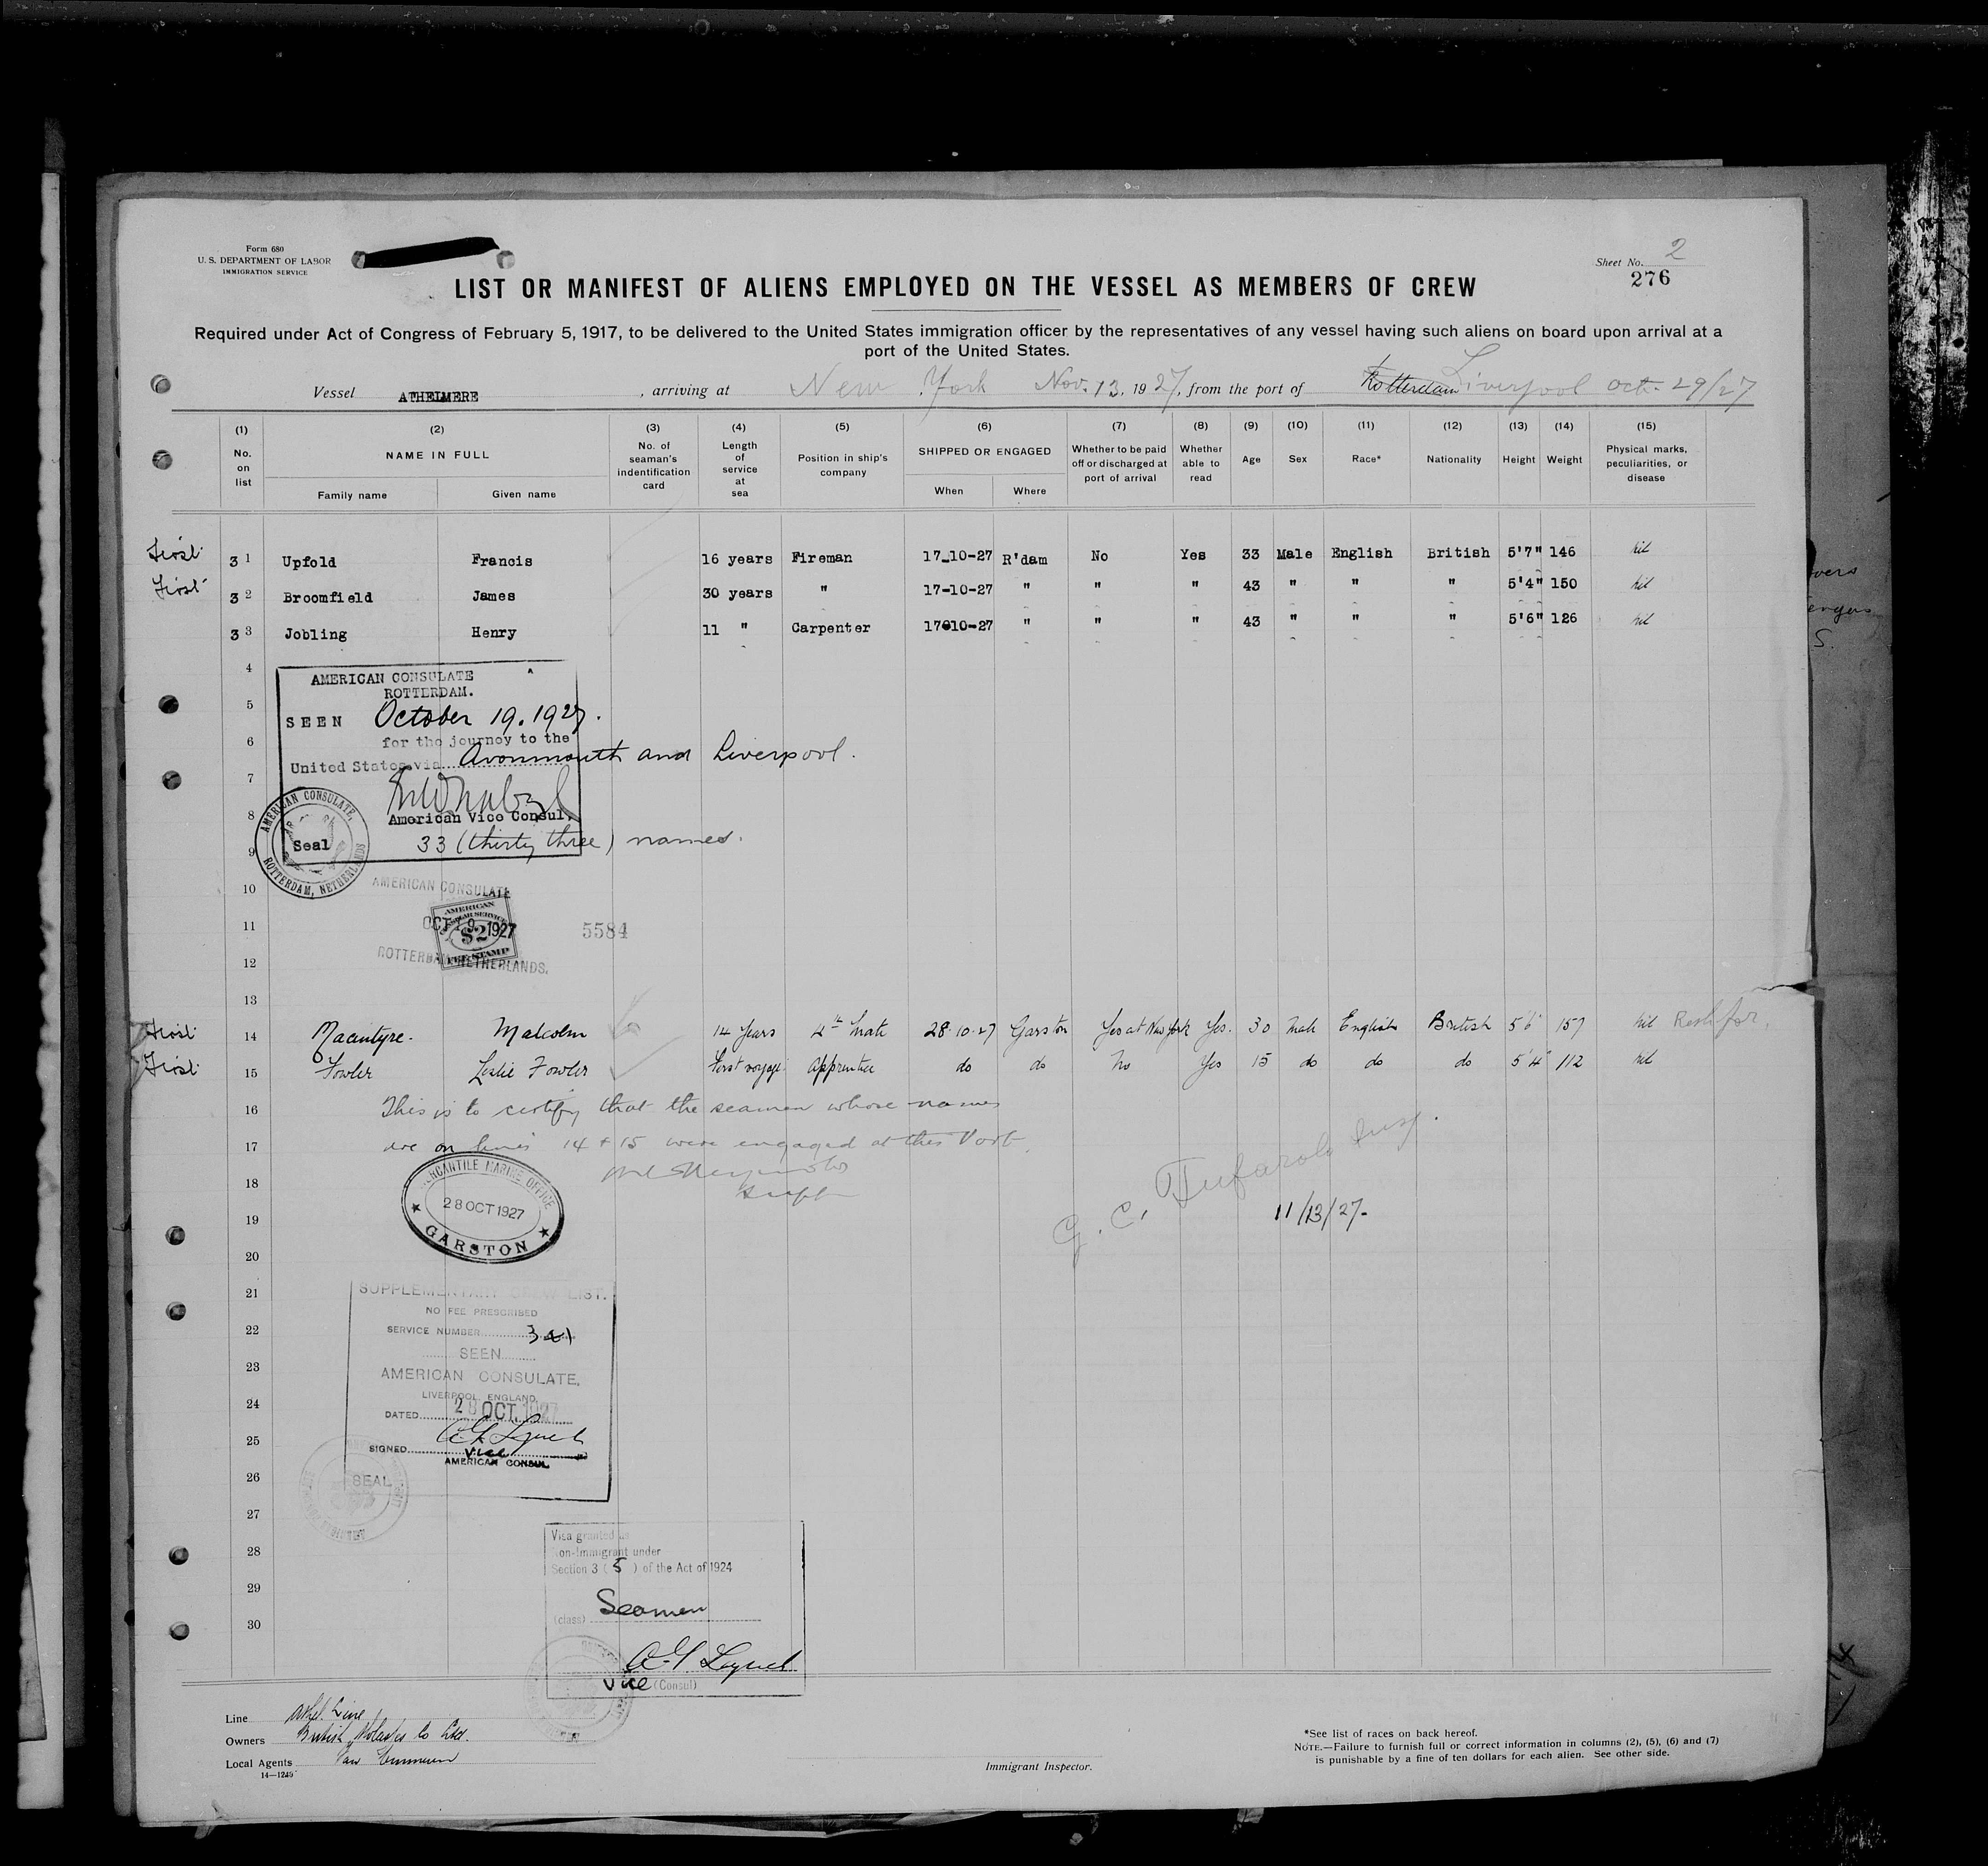 Form 680
U. S. DEPARTMENT OF LABOR
IMMIGRATION SERVICE
Sheet No. 2
276
LIST OR MANIFEST OF ALIENS EMPLOYED ON THE VESSEL AS MEMBERS OF CREW
Required under Act of Congress of February 5, 1917, to be delivered to the United States immigration officer by the representatives of any vessel having such aliens on board upon arrival at a
port of the United States.
Vessel ATHELMERE, arriving at New York Nov. 13, 1927, from the port of Rotterdam Liverpool Oct. 29/27
(1) (2) (3) (4) (5) (6) (7) (8) (9) (10) (11) (12) (13) (14) (15)
No. on list
NAME IN FULL
Family name Given name
No. of seaman's indentification card
Length of service at sea
Position in ship's company
SHIPPED OR ENGAGED
When Where
Whether to be paid off or discharged at port of arrival
Whether able to read
Age
Sex
Race*
Nationality
Height
Weight
Physical marks, peculiarities, or disease
First 3 1 Upfold Francis 16 years Fireman 17-10-27 R'dam No Yes 33 Male English British 5'7" 146 nil
First 3 2 Broomfield James 30 years " 17-10-27 " " " 43 " " " 5'4" 150 nil
3 3 Jobling Henry 11 " Carpenter 17-10-27 " " " 43 " " " 5'6" 126 nil
4
AMERICAN CONSULATE
ROTTERDAM.
5
SEEN October 19. 1927.
6
for the journey to the
United States via Avonmouth and Liverpool.
7
8
American Vice Consul.
9
Seal
33 (thirty three) names.
AMERICAN CONSULATE, ROTTERDAM, NETHERLANDS
10
AMERICAN CONSULATE
11
OCT 19 1927
AMERICAN CONSULAR SERVICE $2 FEE STAMP
5584
12
ROTTERDAM NETHERLANDS.
13
First 14 Macintyre. Malcolm 14 Years 4th Mate 28-10-27 Garston Yes at New York Yes. 30 Male English British 5'6" 157 nil
First 15 Fowler Leslie Fowler First voyage Apprentice do do No Yes 15 do do do 5'4" 112 nil
16
This is to certify that the seamen whose names
17
are on lines 14 + 15 were engaged at this Port.
18
Supt
MERCANTILE MARINE OFFICE
28 OCT 1927
GARSTON
G. C. Tufarolo Insp.
11/13/27.
19
20
21
SUPPLEMENTARY CREW LIST.
NO FEE PRESCRIBED
22
SERVICE NUMBER 321
SEEN
23
AMERICAN CONSULATE,
LIVERPOOL, ENGLAND,
24
DATED 28 OCT. 1927
25
SIGNED A G Lynch
Vice
AMERICAN CONSUL
26
SEAL
27
Visa granted as
28
Non-Immigrant under
Section 3 (5) of the Act of 1924
29
(class) Seamen
30
A G Lynch
Vice (Consul)
Line Athel Line
Owners British Molasses Co Ltd.
Local Agents Van Ommeren
14—1240
Immigrant Inspector.
*See list of races on back hereof.
NOTE.—Failure to furnish full or correct information in columns (2), (5), (6) and (7)
is punishable by a fine of ten dollars for each alien. See other side.